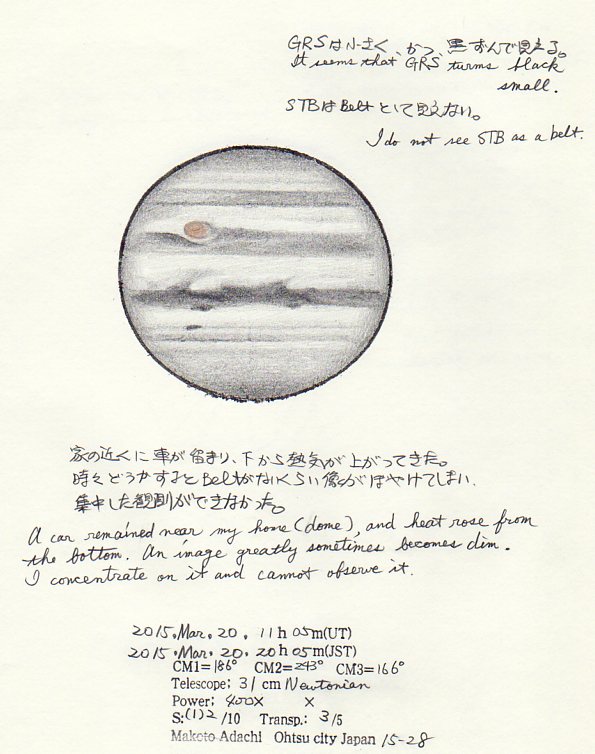 GRSは小さく、かつ、黒ずんで見える。
It seems that GRS turns black
small.
STBはBeltとして見えない。
I do not see STB as a belt.
家の近くに車が留まり、下から熱気が上がってきた。
時々どうかするとBeltがないくらい像がぼやけてしまい、
集中した観測ができなかった。
A car remained near my home (dome), and heat rose from
the bottom. An image greatly sometimes becomes dim.
I concentrate on it and cannot observe it.
2015. Mar. 20. 11h 05m(UT)
2015. Mar. 20. 20h 05m(JST)
CM1=186° CM2=243° CM3=166°
Telescope; 31 cm Newtonian
Power; 400X X
S:(1)2/10 Transp.: 3/5
Makoto Adachi Ohtsu city Japan 15-28